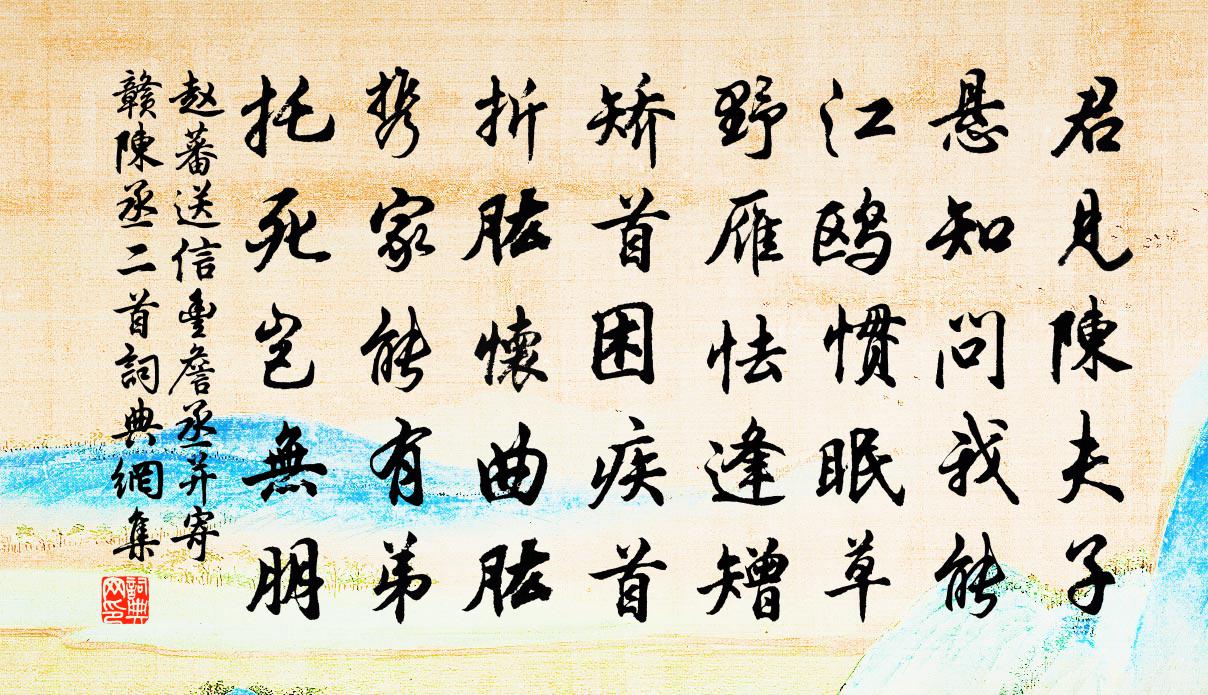 君見陳夫子
悬知问我能
江鸥惯眠草
野雁怯逢矰
矫首困疾首
折肱懷曲肱
携家能有弟
托死岂無朋
赵蕃送信豊詹丞并寄
赣陳丞二首詞典網集
詞典
网印